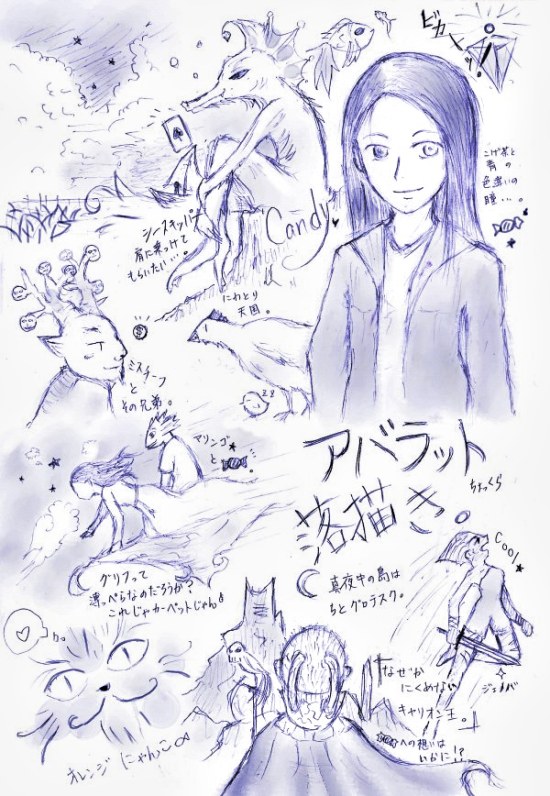 ピカーッ!
こげ茶と
青の
色違いの
瞳…。
Candy
シースキッパー
肩に乗っけて
もらいたい…。
にわとり
天国。
ミスチーフ
と
その兄弟。
マリンゴ
と
アバラット
落描き
ちょっくら
グリフって
薄っぺらなのだろうか?
これじゃカーペットじゃん
真夜中の島は
ちとグロテスク。
Cool
なぜか
にくめない
キャリオン王。
への想いは
いかに!?
オレンジ にゃんこ